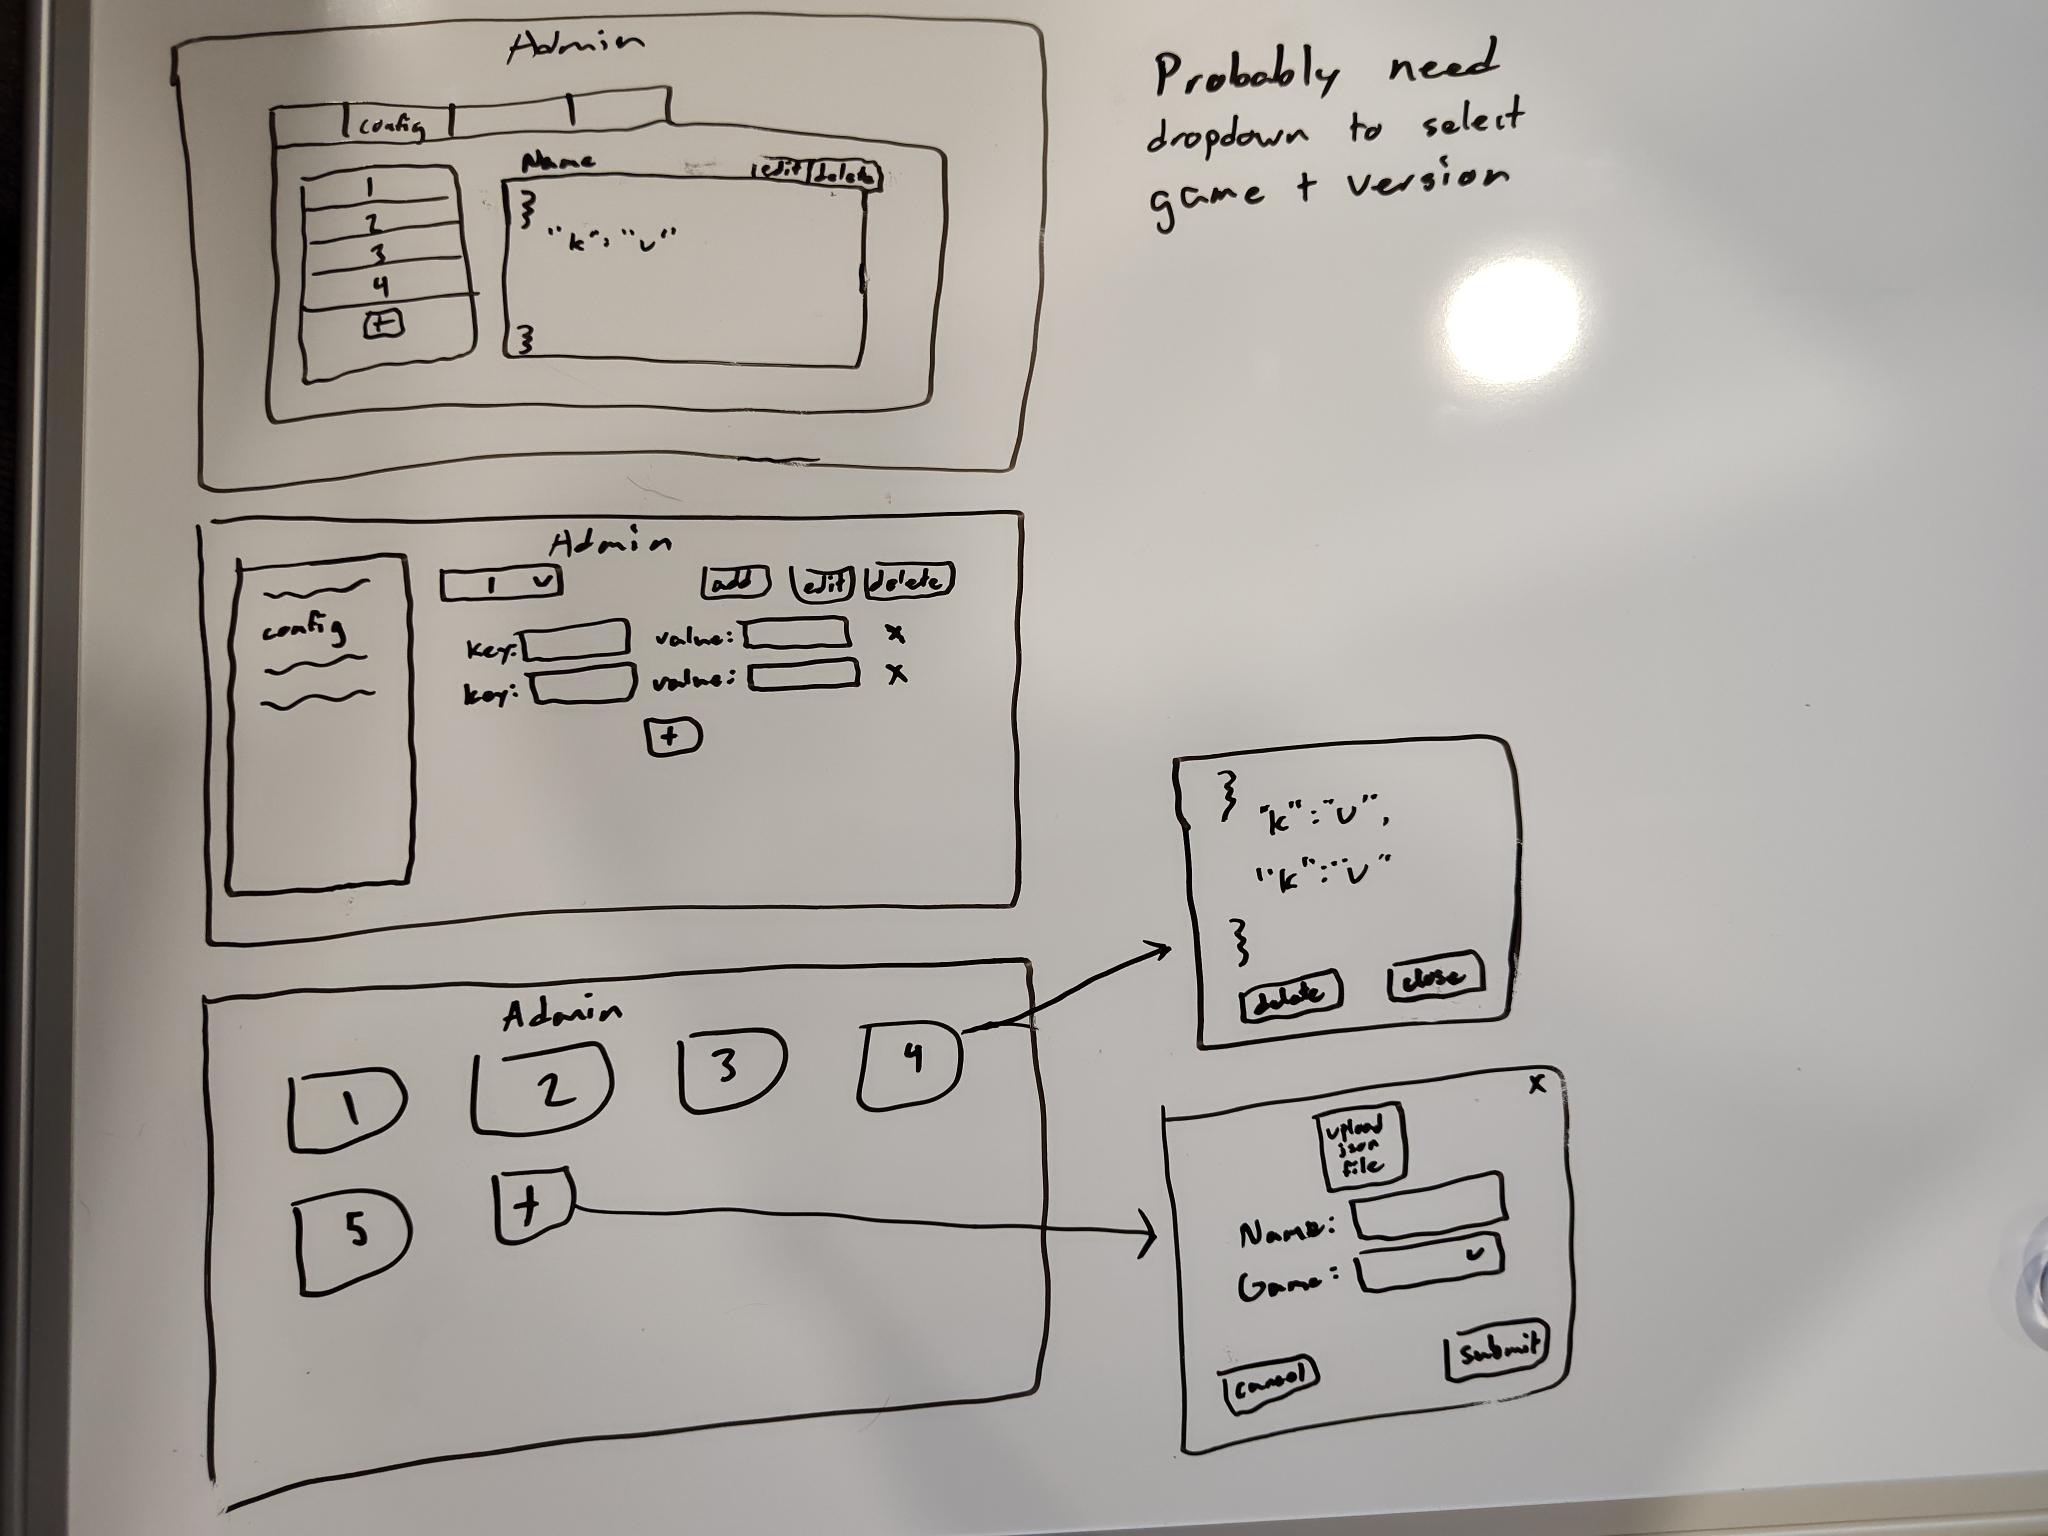 Admin
config
Name
edit delete
1
2
3
4
+
}
"k": "v"
}
Probably need
dropdown to select
game + version
Admin
config
1 v
add edit delete
key: value: x
key: value: x
+
Admin
1 2 3 4
5 +
}
"k":"v",
"k":"v"
}
delete close
x
upload
json
file
Name:
Game: v
cancel submit